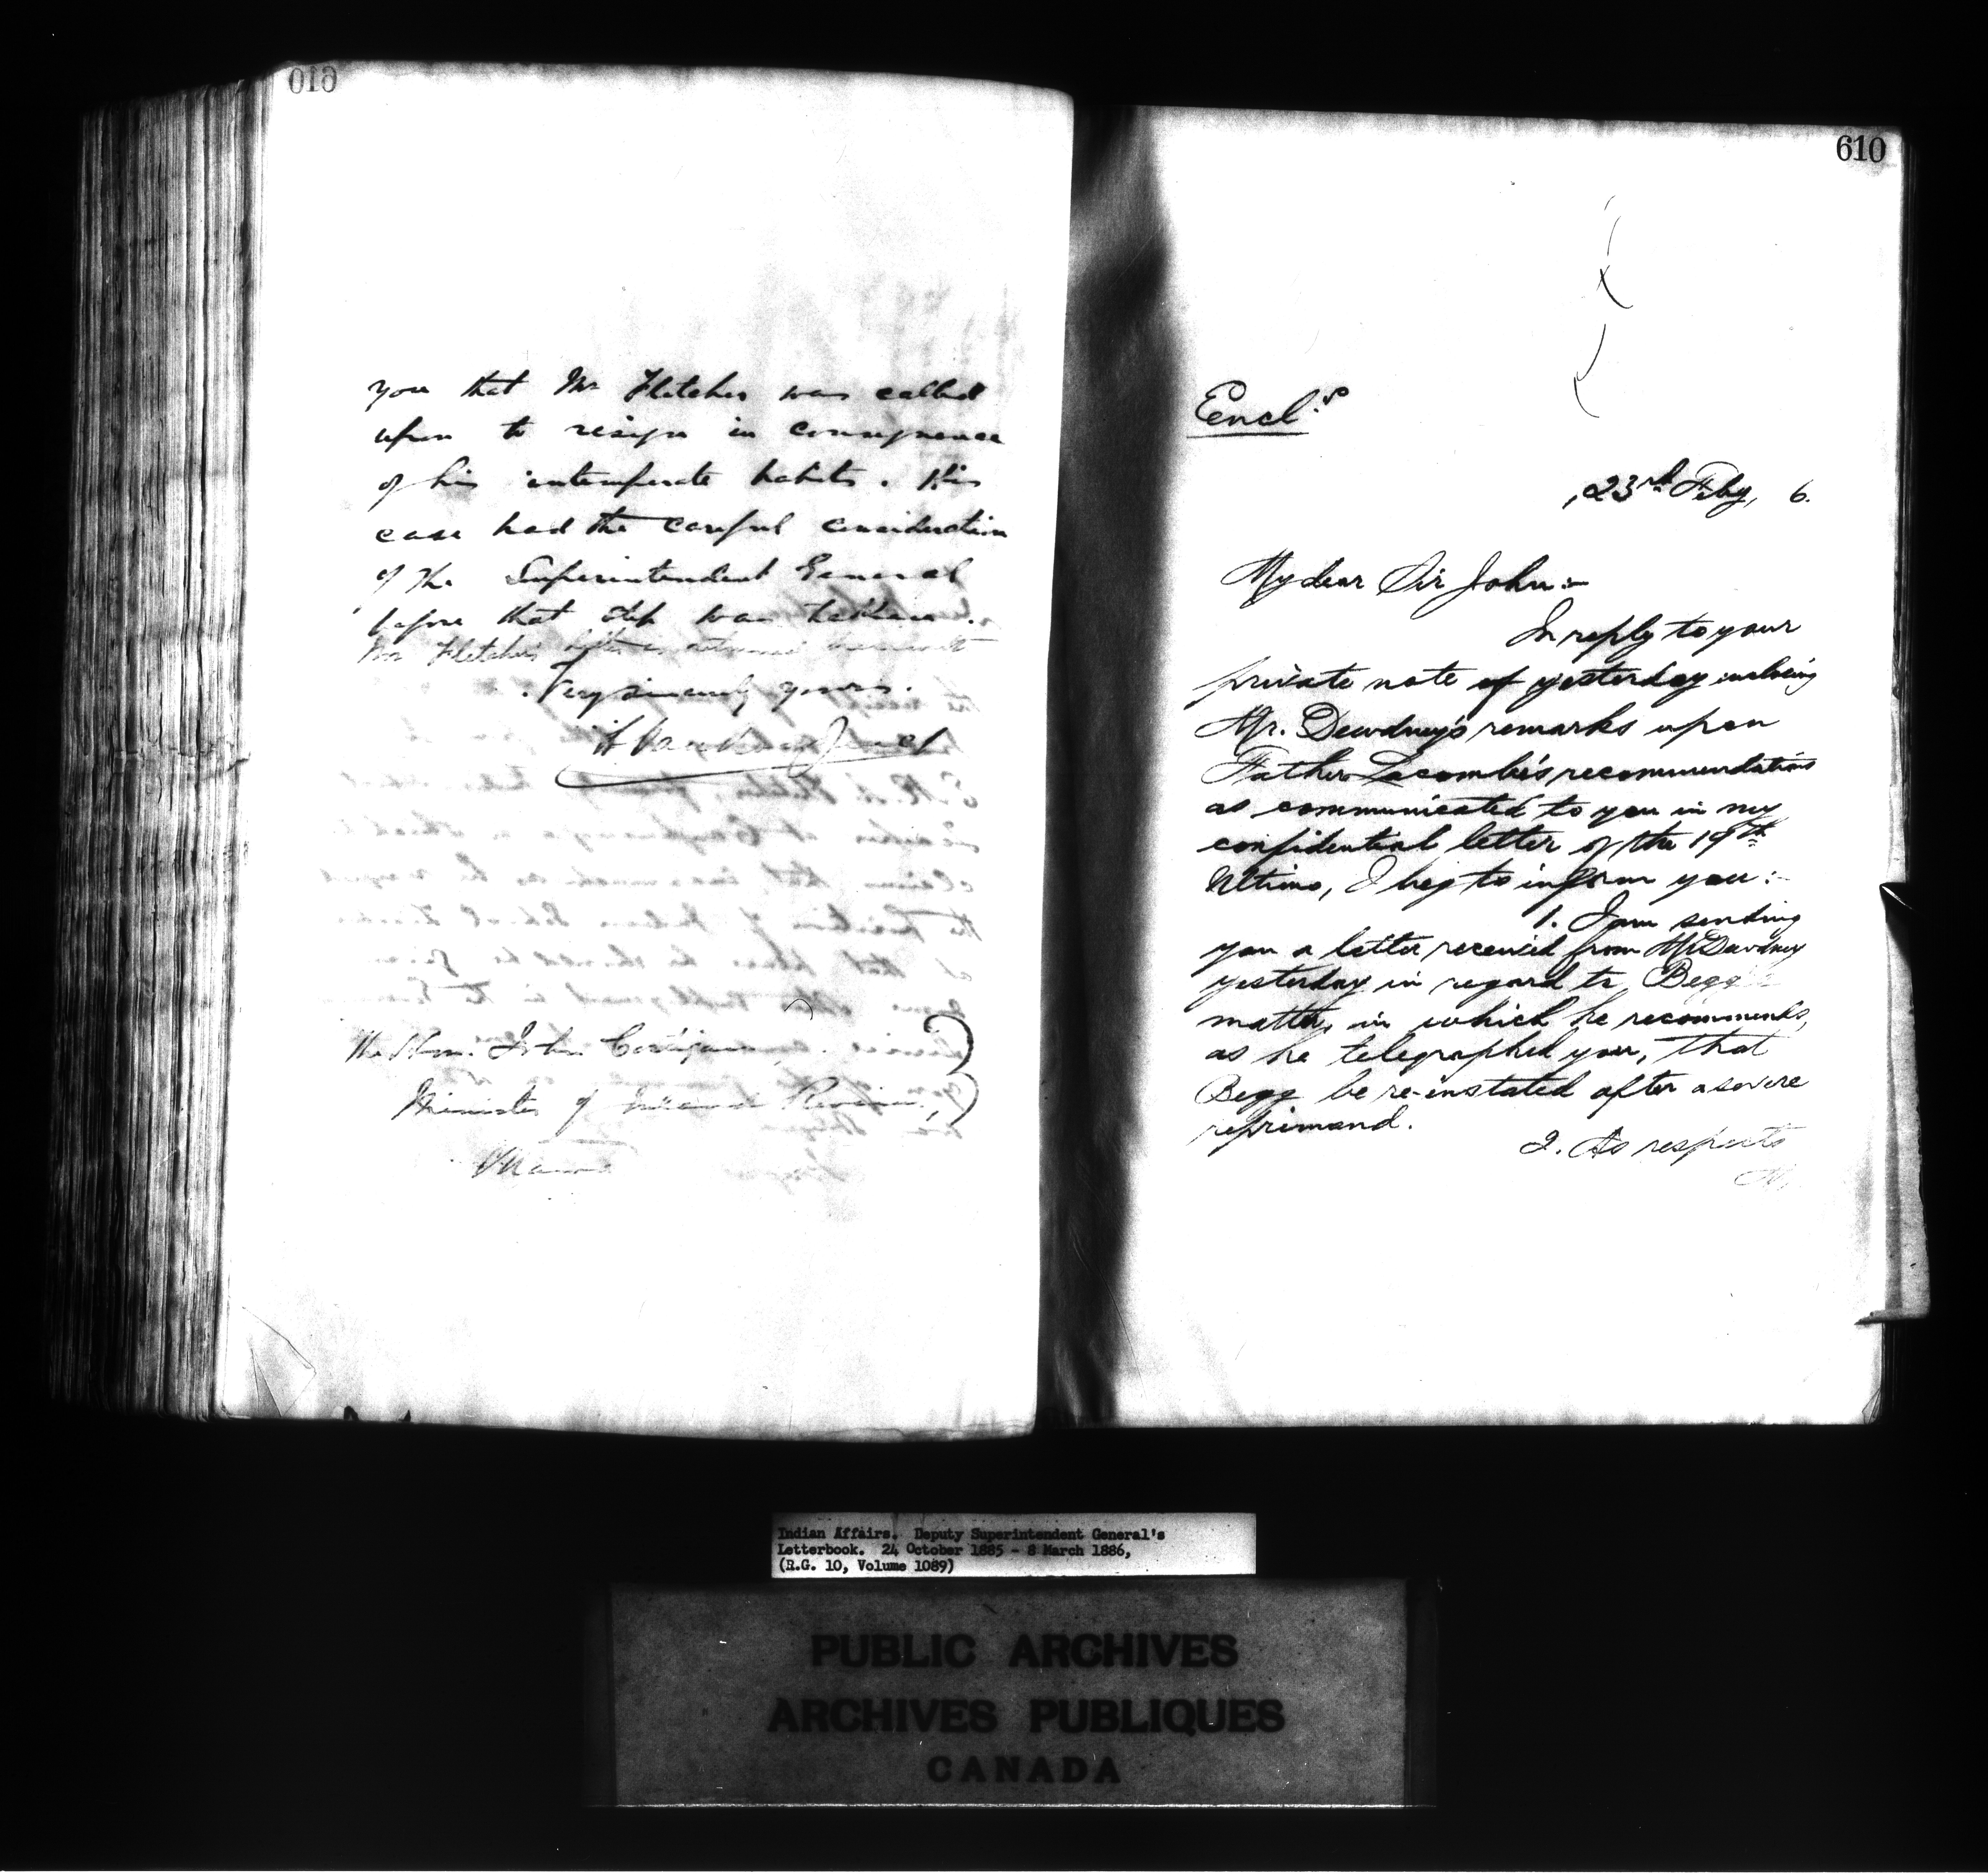 you that Mr Fletcher was called
upon to resign in consequence
of his intemperate habits. His
case had the careful consideration
of the Superintendent General
before that step was taken.
Mr Fletcher's letter is returned herewith
Very sincerely yours.
The Hon. John Costigan,
Minister of Inland Revenue,
Ottawa
610
Encl.s
23rd Feby, 6.
My dear Sir John:-
In reply to your
private note of yesterday enclosing
Mr. Dewdney's remarks upon
Father Lacombe's recommendations
as communicated to you in my
confidential letter of the 19th
Ultimo, I beg to inform you:-
1. I am sending
you a letter received from Mr Dewdney
yesterday in regard to Begg's
matter, in which he recommends,
as he telegraphed you, that
Begg be re-instated after a severe
reprimand.
2. As respects
Indian Affairs. Deputy Superintendent General's
Letterbook. 24 October 1885 - 8 March 1886,
(R.G. 10, Volume 1089)
PUBLIC ARCHIVES
ARCHIVES PUBLIQUES
CANADA